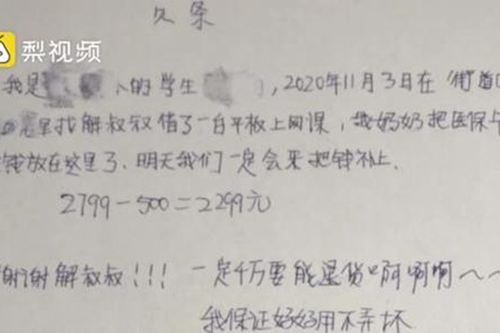 欠条
梨视频
我是 的学生 ,2020年11月3日在
里找解叔叔借了一台平板上网课,我奶奶把医保卡
钱放在这里了.明天我们一定会来把钱补上.
2799-500=2299元
谢谢解叔叔!!! 一定千万要能退货啊啊啊啊~~
我保证好好用不弄坏